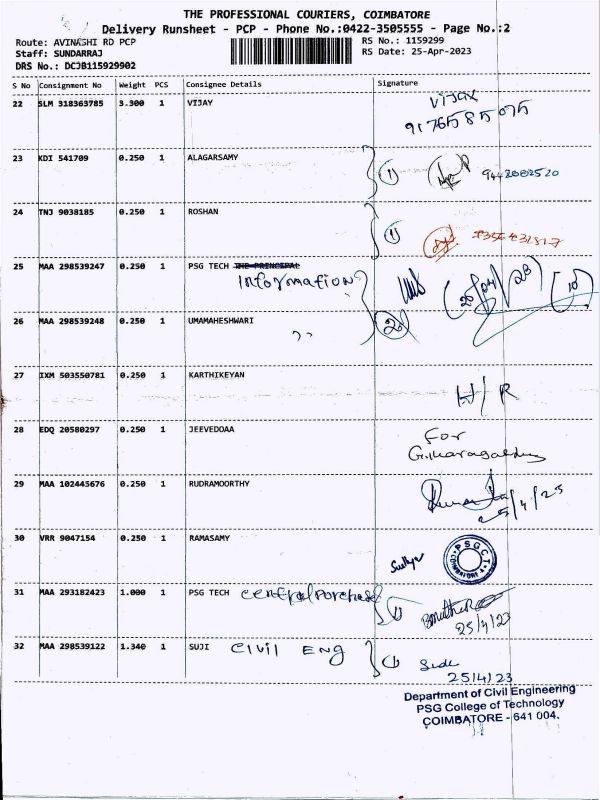 THE PROFESSIONAL COURIERS, COIMBATORE
Delivery Runsheet - PCP - Phone No.:0422-3505555 - Page No.:2
Route: AVINASHI RD PCP
RS No.: 1159299
Staff: SUNDARRAJ
RS Date: 25-Apr-2023
DRS No.: DCJB115929902
S No Consignment No Weight PCS Consignee Details Signature
22 SLM 318363785 3.300 1 VIJAY VIJAY
9176585075
23 KDI 541709 0.250 1 ALAGARSAMY (1) 9442002520
24 TNJ 9038185 0.250 1 ROSHAN (1)
25 MAA 298539247 0.250 1 PSG TECH THE PRINCIPAL
Information
26 MAA 298539248 0.250 1 UMAMAHESHWARI
27 IXM 503550781 0.250 1 KARTHIKEYAN H/R
28 EDQ 20580297 0.250 1 JEEVEDOAA For
29 MAA 102445676 0.250 1 RUDRAMOORTHY
25/4/23
30 VRR 9047154 0.250 1 RAMASAMY
PSGCT COIMBATORE
31 MAA 293182423 1.000 1 PSG TECH central Purchase
25/4/23
32 MAA 298539122 1.340 1 SUJI CIVIL ENG (1)
25/4/23
Department of Civil Engineering
PSG College of Technology
COIMBATORE - 641 004.